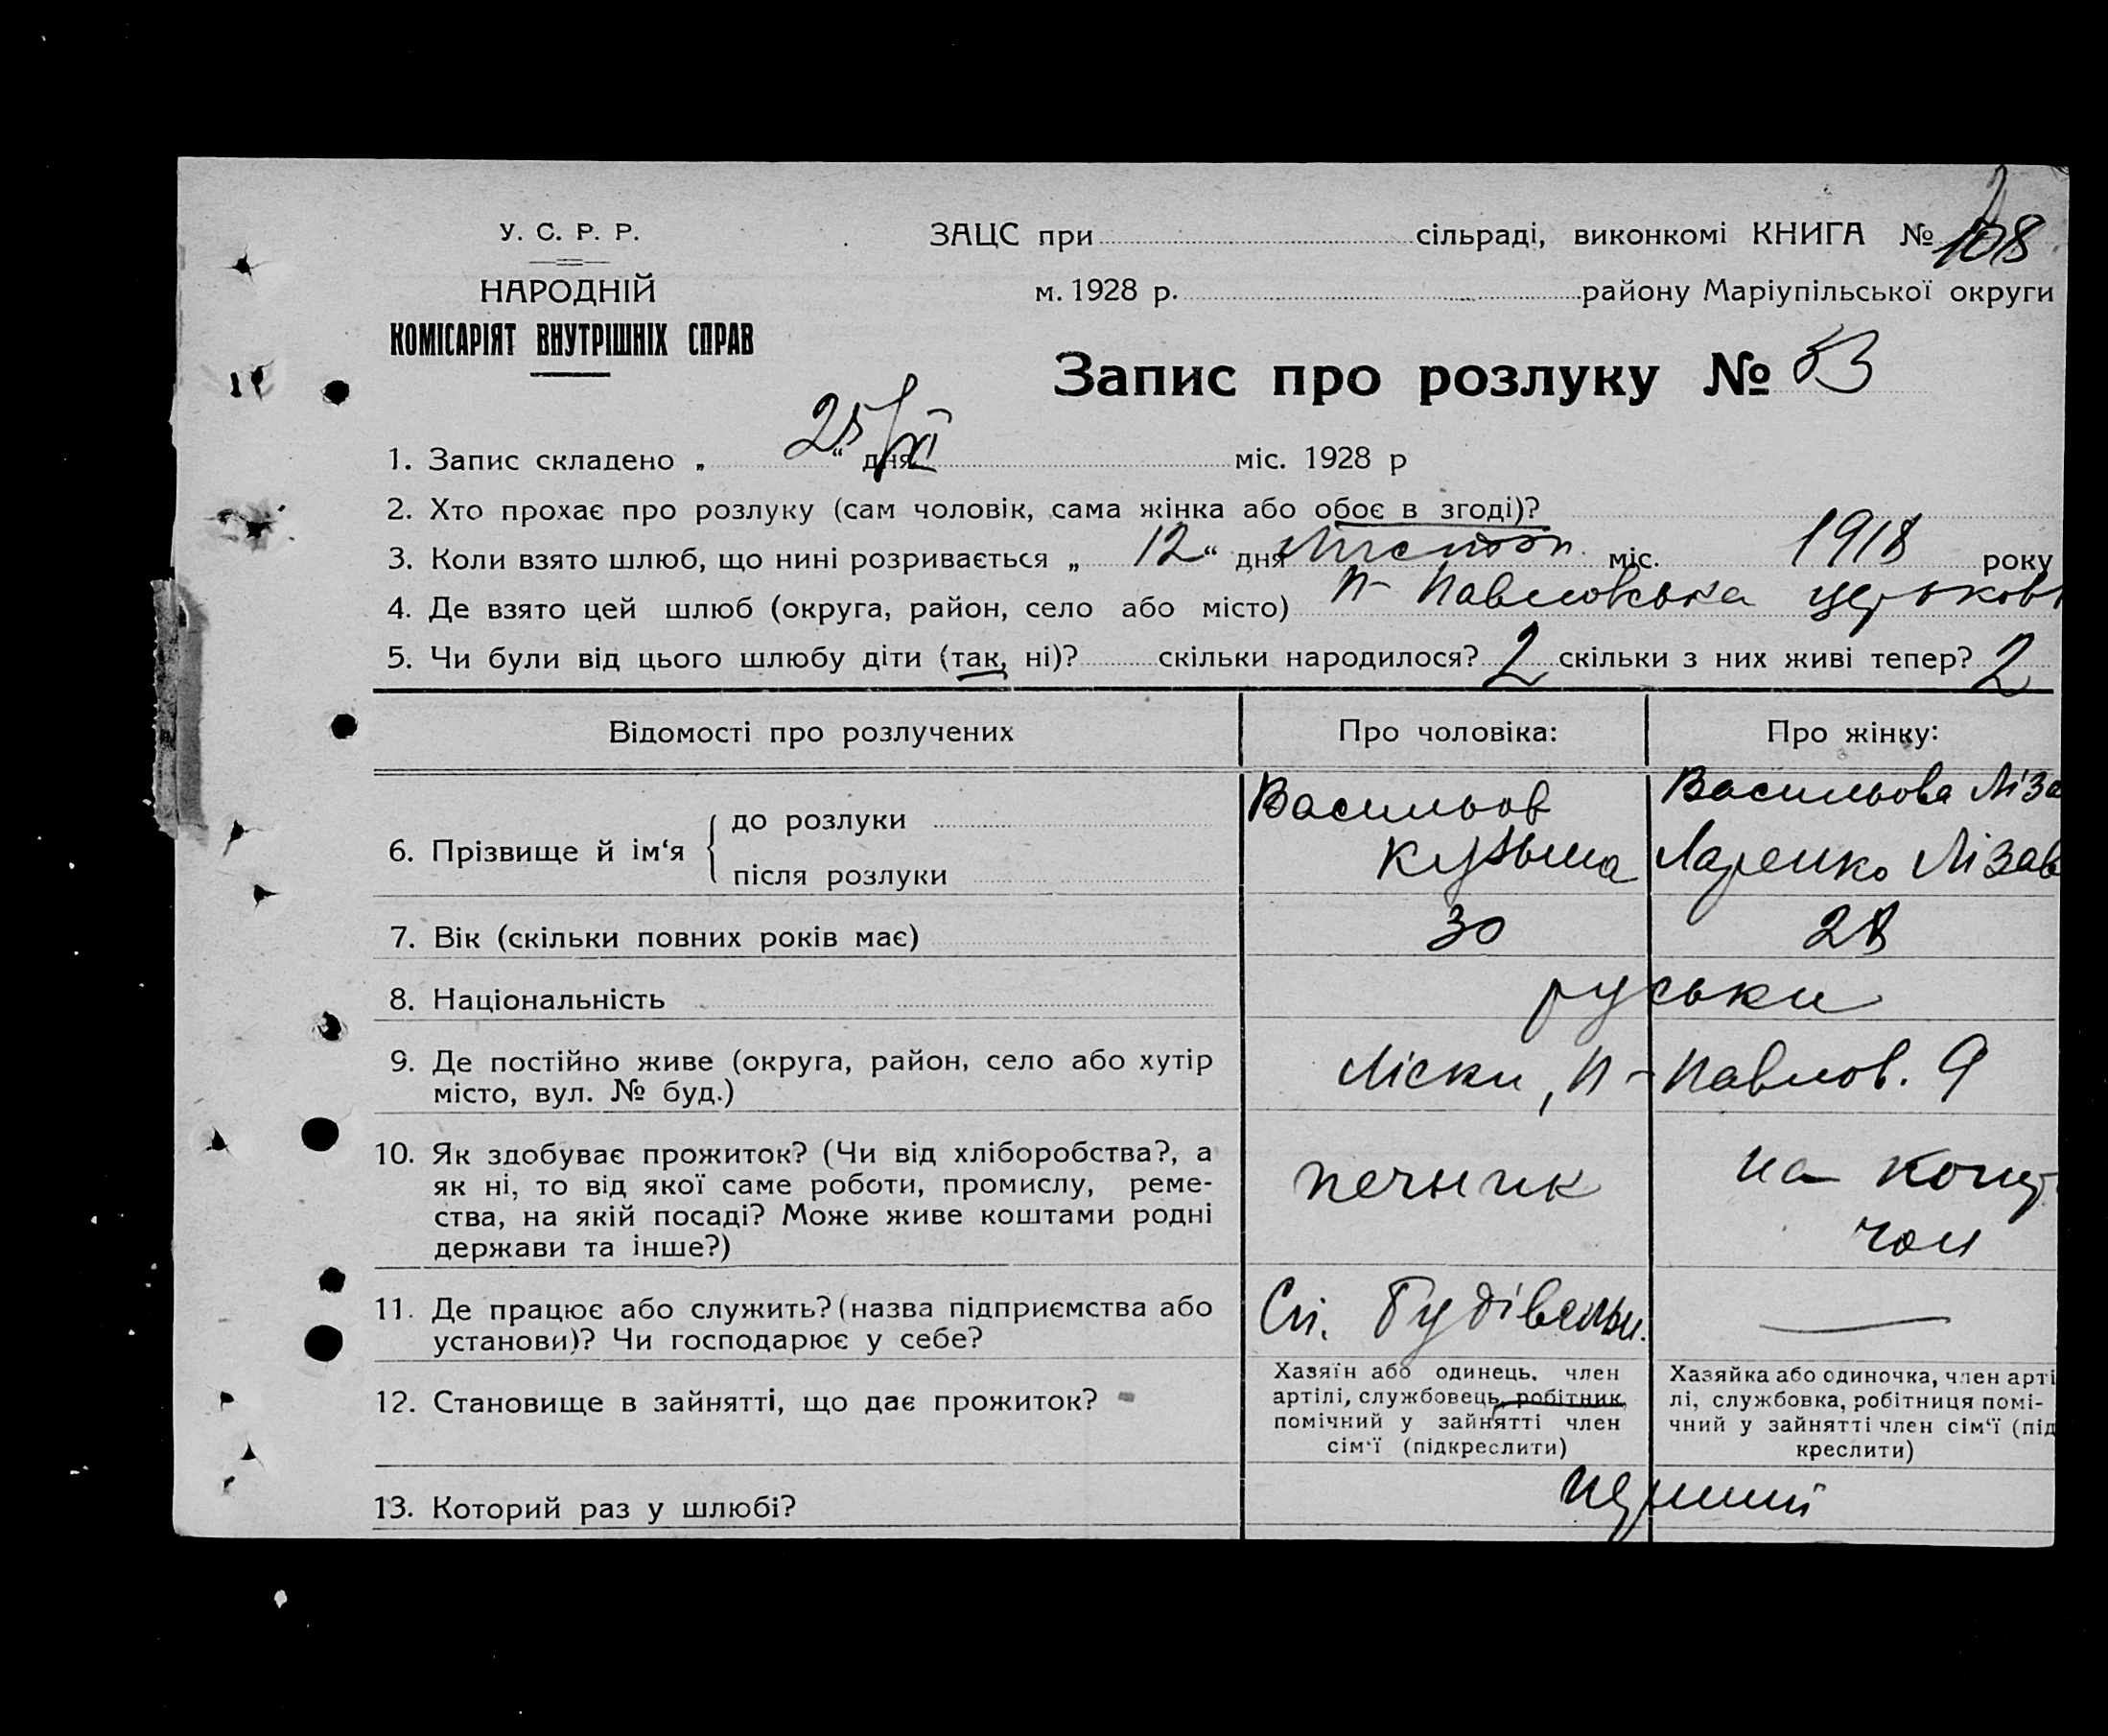 У. С. Р. Р.
НАРОДНІЙ
КОМІСАРІЯТ ВНУТРІШНІХ СПРАВ
ЗАЦС при сільраді, виконкомі КНИГА № 108
м. 1928 р. району Маріупільської округи
Запис про розлуку № 53
1. Запис складено „ 25/XI “ дня міс. 1928 р
2. Хто прохає про розлуку (сам чоловік, сама жінка або обоє в згоді)?
3. Коли взято шлюб, що нині розривається „ 12 “ дня Листоп. міс. 1918 року
4. Де взято цей шлюб (округа, район, село або місто) П-Павловська церькові
5. Чи були від цього шлюбу діти (так, ні)? скільки народилося? 2 скільки з них живі тепер? 2
Відомості про розлучених Про чоловіка: Про жінку:
6. Прізвище й ім‘я
до розлуки Васильов Васильова Ліза
після розлуки Кузьма Лізав
7. Вік (скільки повних років має) 30 28
8. Національність руськи
9. Де постійно живе (округа, район, село або хутір
місто, вул. № буд.)
Ліски, П-Павлов. 9
10. Як здобуває прожиток? (Чи від хліборобства?, а
як ні, то від якої саме роботи, промислу, реме-
ства, на якій посаді? Може живе коштами родні
держави та інше?)
печник
на
чол
11. Де працює або служить? (назва підприємства або
установи)? Чи господарює у себе?
Сп. Будівельн. —
12. Становище в зайнятті, що дає прожиток?
Хазяїн або одинець, член
артілі, службовець, робітник,
помічний у зайнятті член
сім‘ї (підкреслити)
Хазяйка або одиночка, член арті
лі, службовка, робітниця помі-
чний у зайнятті член сім‘ї (під
креслити)
13. Которий раз у шлюбі? перший